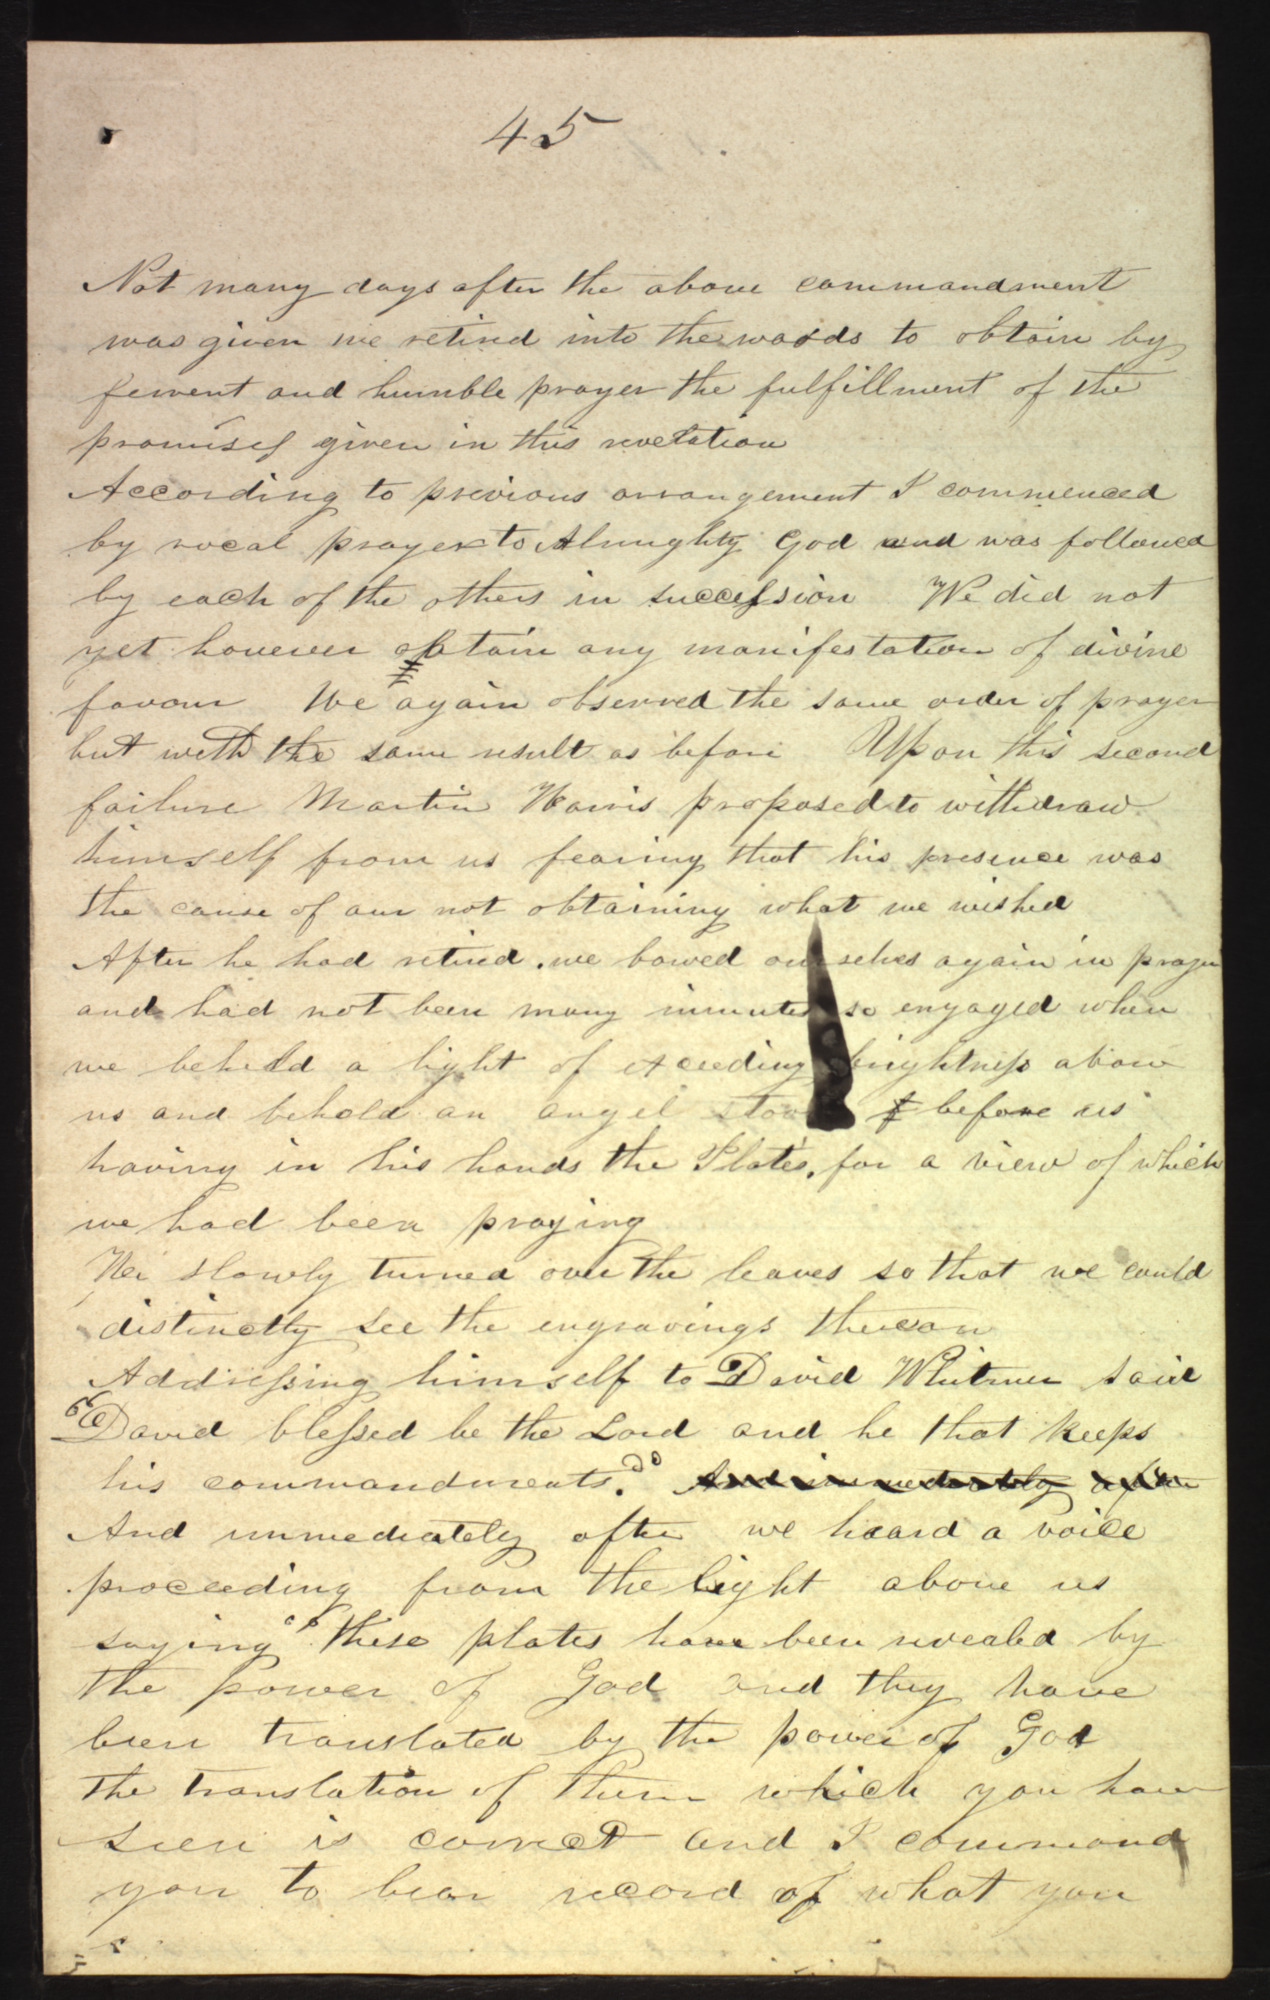 45
Not many days after the above commandment
was given we retired into the woods to obtain by
fervent and humble prayer the fulfillment of the
promises given in this revelation
According to previous arrangement I commenced
by vocal prayer to Almughty God and was followed
by each of the others in succession We did not
yet however obtain any manifestation of divine
favour We again observed the same order of prayer
but with the same result as before Upon this second
failure Martin Harris proposed to withdraw
himself from us fearing that his presence was
the cause of our not obtaining what we wished
After he had retired. we bowed ourselves again in prayer
and had not been many minutes so engaged when
we beheld a light of exceeding brightness above
us and behold an angel stood before us
having in his hands the Plates, for a view of which
we had been praying
He slowly turned over the leaves so that we could
distinctly see the engravings thereon
Addressing himself to David Whitmer said
"David blessed be the Lord and he that keeps
his commandments." And immediately after
And immediately after we heard a voice
proceeding from the light above us
saying "these plates have been revealed by
the power of God and they have
been translated by the power of God
the translation of them which you have
seen is correct and I command
you to bear record of what you